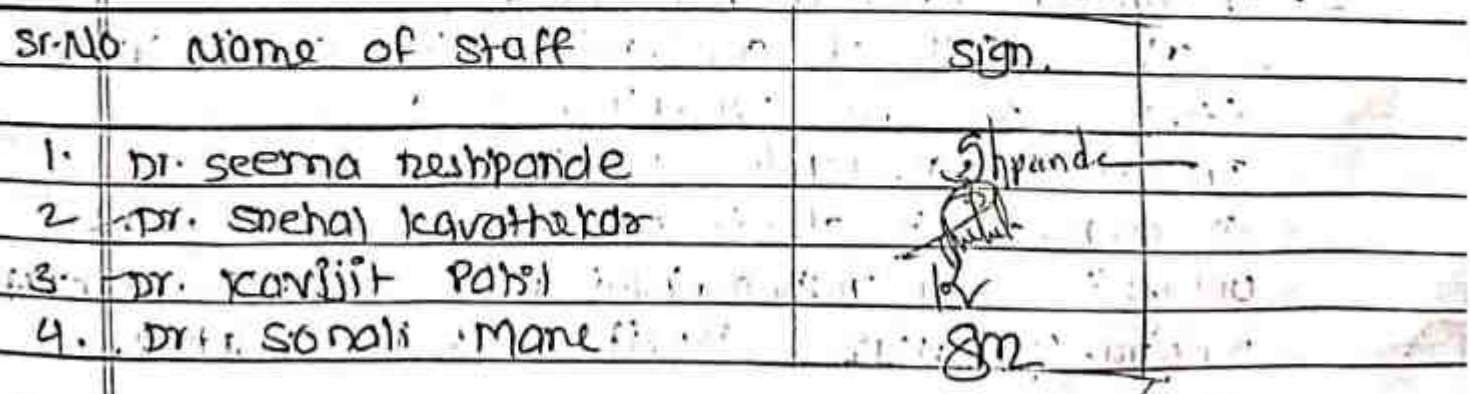 Sr.No. Name of staff sign.
1. Dr. seema Deshpande Shpande
2 Dr. Snehal Kavathekar
3. Dr. Patil
4. Dr. Sonali Mane Sm